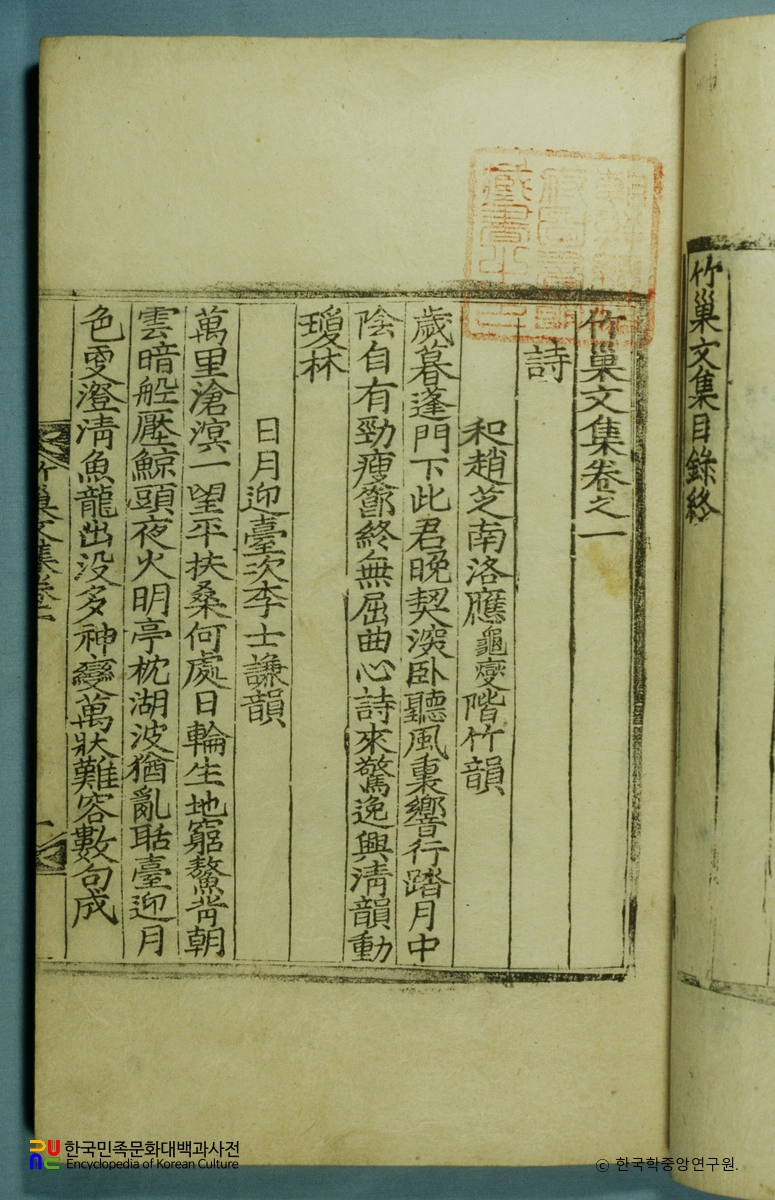 竹巢文集目錄終
朝鮮總督
府圖書館
藏書之印
竹巢文集卷之一
詩
和趙芝南洛應龜燮階竹韻
歲暮蓬門下此君晚契深卧聽風裏響行踏月中
陰自有勁瘦節終無屈曲心詩來驚逸興淸韻動
瓊林
日月迎臺次李士謙韻
萬里滄溟一望平扶桑何處日輪生地窮鰲背朝
雲暗船壓鯨頭夜火明亭枕湖波猶亂聒臺迎月
色更澄淸魚龍出没多神變萬狀難容數句成
竹巢文集卷一
一
한국민족문화대백과사전
Encyclopedia of Korean Culture
© 한국학중앙연구원.